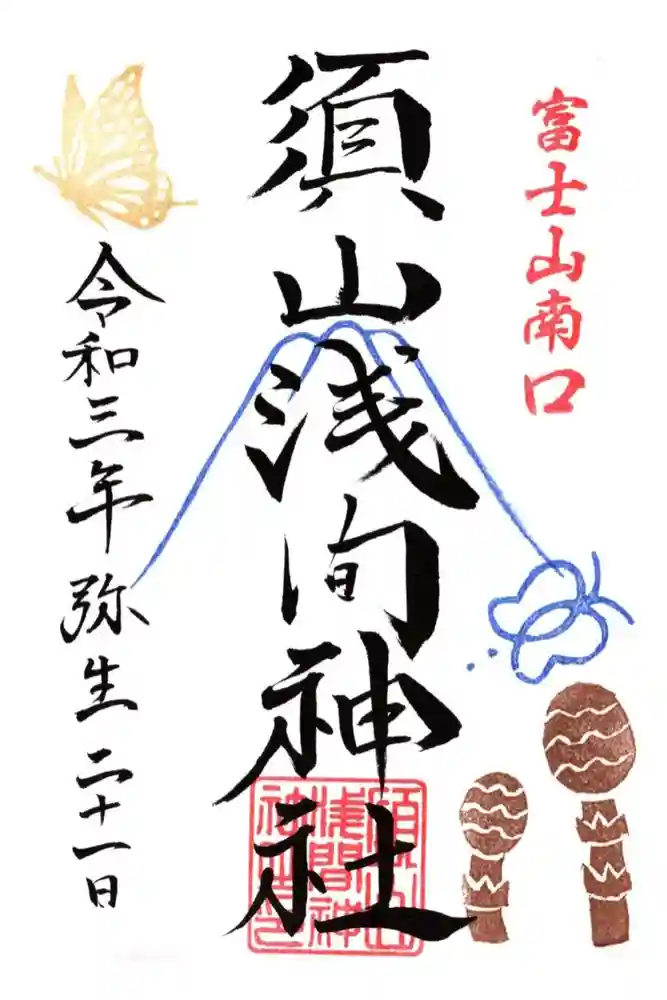 富士山南口
須山浅間神社
須山
浅間神
社之印
令和三年弥生二十一日